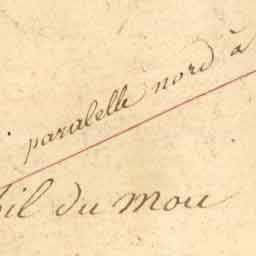 paralelle nord à
il du mou